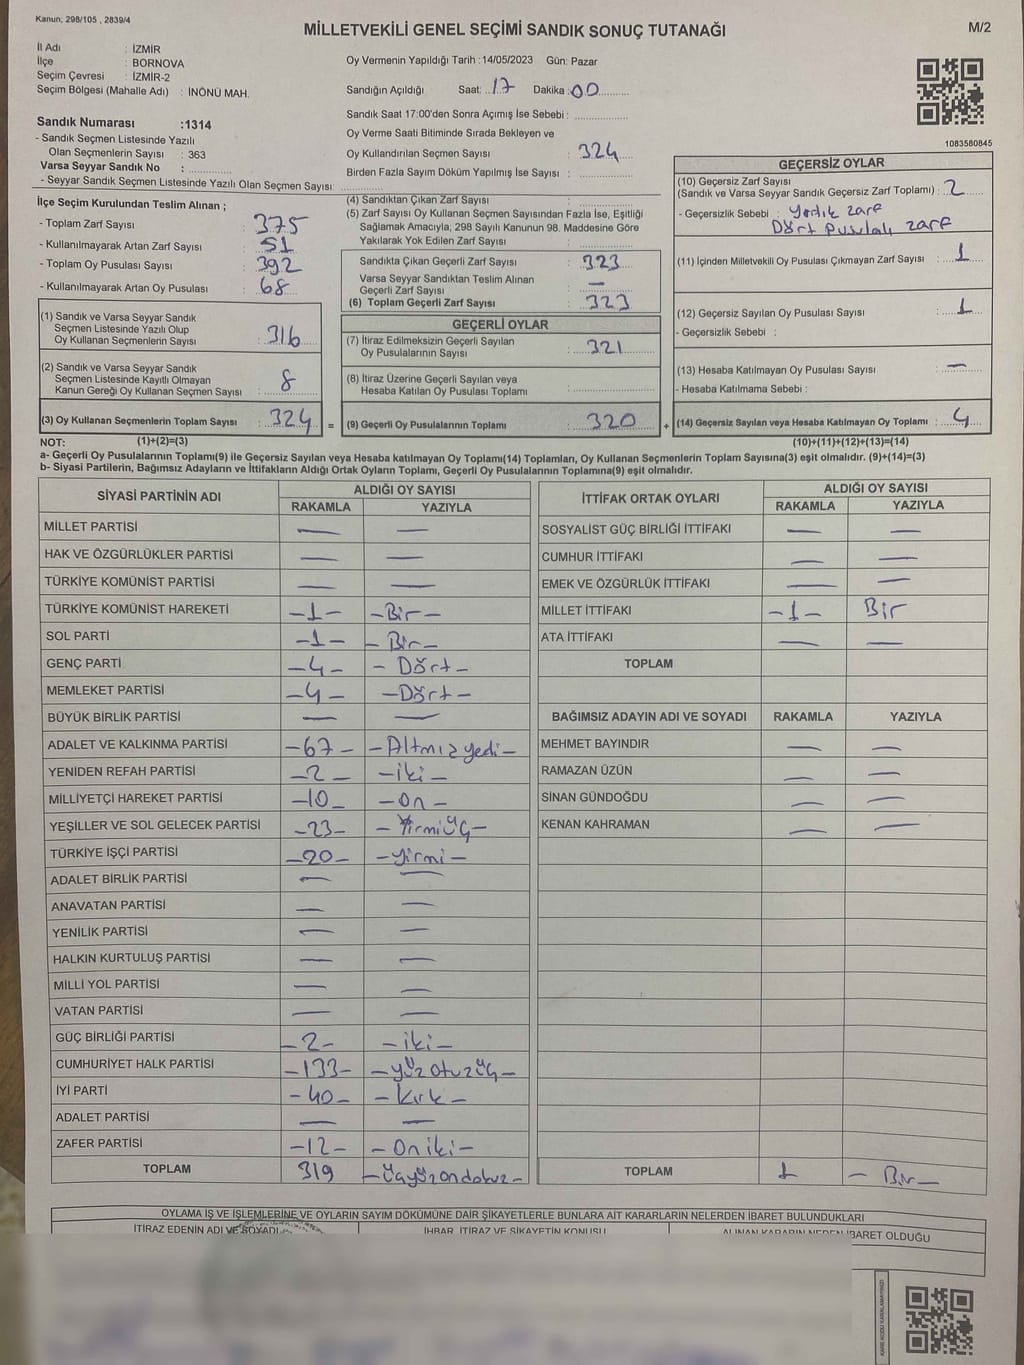 Kanun; 298/105 , 2839/4
MİLLETVEKİLİ GENEL SEÇİMİ SANDIK SONUÇ TUTANAĞI
M/2
İl Adı : İZMİR
İlçe : BORNOVA
Seçim Çevresi : İZMİR-2
Seçim Bölgesi (Mahalle Adı) : İNÖNÜ MAH.
Oy Vermenin Yapıldığı Tarih :14/05/2023 Gün: Pazar
Sandığın Açıldığı Saat: 17 Dakika :00
Sandık Saat 17:00'den Sonra Açımış İse Sebebi :
Oy Verme Saati Bitiminde Sırada Bekleyen ve
Oy Kullandırılan Seçmen Sayısı : 324
Birden Fazla Sayım Döküm Yapılmış İse Sayısı :
Sandık Numarası :1314
- Sandık Seçmen Listesinde Yazılı
Olan Seçmenlerin Sayısı : 363
Varsa Seyyar Sandık No :
- Seyyar Sandık Seçmen Listesinde Yazılı Olan Seçmen Sayısı:
İlçe Seçim Kurulundan Teslim Alınan ;
- Toplam Zarf Sayısı : 375
- Kullanılmayarak Artan Zarf Sayısı : 51
- Toplam Oy Pusulası Sayısı : 392
- Kullanılmayarak Artan Oy Pusulası : 68
(1) Sandık ve Varsa Seyyar Sandık
Seçmen Listesinde Yazılı Olup
Oy Kullanan Seçmenlerin Sayısı : 316
(2) Sandık ve Varsa Seyyar Sandık
Seçmen Listesinde Kayıtlı Olmayan
Kanun Gereği Oy Kullanan Seçmen Sayısı : 8
(3) Oy Kullanan Seçmenlerin Toplam Sayısı : 324 =
(4) Sandıktan Çıkan Zarf Sayısı :
(5) Zarf Sayısı Oy Kullanan Seçmen Sayısından Fazla İse, Eşitliği
Sağlamak Amacıyla, 298 Sayılı Kanunun 98. Maddesine Göre
Yakılarak Yok Edilen Zarf Sayısı :
Sandıkta Çıkan Geçerli Zarf Sayısı : 323
Varsa Seyyar Sandıktan Teslim Alınan
Geçerli Zarf Sayısı : —
(6) Toplam Geçerli Zarf Sayısı : 323
GEÇERLİ OYLAR
(7) İtiraz Edilmeksizin Geçerli Sayılan
Oy Pusulalarının Sayısı : 321
(8) İtiraz Üzerine Geçerli Sayılan veya
Hesaba Katılan Oy Pusulası Toplamı :
(9) Geçerli Oy Pusulalarının Toplamı : 320 +
1083580845
GEÇERSİZ OYLAR
(10) Geçersiz Zarf Sayısı
(Sandık ve Varsa Seyyar Sandık Geçersiz Zarf Toplamı) : 2
- Geçersizlik Sebebi : Yırtık zarf
Dört pusulalı zarf
(11) İçinden Milletvekili Oy Pusulası Çıkmayan Zarf Sayısı : 1
(12) Geçersiz Sayılan Oy Pusulası Sayısı : 1
- Geçersizlik Sebebi :
(13) Hesaba Katılmayan Oy Pusulası Sayısı : —
- Hesaba Katılmama Sebebi :
(14) Geçersiz Sayılan veya Hesaba Katılmayan Oy Toplamı : 4
NOT: (1)+(2)=(3) (10)+(11)+(12)+(13)=(14)
a- Geçerli Oy Pusulalarının Toplamı(9) ile Geçersiz Sayılan veya Hesaba katılmayan Oy Toplamı(14) Toplamları, Oy Kullanan Seçmenlerin Toplam Sayısına(3) eşit olmalıdır. (9)+(14)=(3)
b- Siyasi Partilerin, Bağımsız Adayların ve İttifakların Aldığı Ortak Oyların Toplamı, Geçerli Oy Pusulalarının Toplamına(9) eşit olmalıdır.
SİYASİ PARTİNİN ADI ALDIĞI OY SAYISI
RAKAMLA YAZIYLA
MİLLET PARTİSİ — —
HAK VE ÖZGÜRLÜKLER PARTİSİ — —
TÜRKİYE KOMÜNİST PARTİSİ — —
TÜRKİYE KOMÜNİST HAREKETİ -1- -Bir-
SOL PARTİ -1- -Bir-
GENÇ PARTİ -4- -Dört-
MEMLEKET PARTİSİ -4- -Dört-
BÜYÜK BİRLİK PARTİSİ — —
ADALET VE KALKINMA PARTİSİ -67- -Altmışyedi-
YENİDEN REFAH PARTİSİ -2- -iki-
MİLLİYETÇİ HAREKET PARTİSİ -10- -On-
YEŞİLLER VE SOL GELECEK PARTİSİ -23- -Yirmiüç-
TÜRKİYE İŞÇİ PARTİSİ -20- -yirmi-
ADALET BİRLİK PARTİSİ — —
ANAVATAN PARTİSİ — —
YENİLİK PARTİSİ — —
HALKIN KURTULUŞ PARTİSİ — —
MİLLİ YOL PARTİSİ — —
VATAN PARTİSİ — —
GÜÇ BİRLİĞİ PARTİSİ -2- -iki-
CUMHURİYET HALK PARTİSİ -133- -yüzotuzüç-
İYİ PARTİ -40- -Kırk-
ADALET PARTİSİ — —
ZAFER PARTİSİ -12- -Oniki-
TOPLAM 319 -üçyüzondokuz-
İTTİFAK ORTAK OYLARI ALDIĞI OY SAYISI
RAKAMLA YAZIYLA
SOSYALİST GÜÇ BİRLİĞİ İTTİFAKI — —
CUMHUR İTTİFAKI — —
EMEK VE ÖZGÜRLÜK İTTİFAKI — —
MİLLET İTTİFAKI -1- Bir
ATA İTTİFAKI — —
TOPLAM
BAĞIMSIZ ADAYIN ADI VE SOYADI RAKAMLA YAZIYLA
MEHMET BAYINDIR — —
RAMAZAN ÜZÜN — —
SİNAN GÜNDOĞDU — —
KENAN KAHRAMAN — —
TOPLAM 1 -Bir-
OYLAMA İŞ VE İŞLEMLERİNE VE OYLARIN SAYIM DÖKÜMÜNE DAİR ŞİKAYETLERLE BUNLARA AİT KARARLARIN NELERDEN İBARET BULUNDUKLARI
İTİRAZ EDENİN ADI VE SOYADI İHBAR, İTİRAZ VE ŞİKAYETİN KONUSU ALINAN KARARIN NEDEN İBARET OLDUĞU